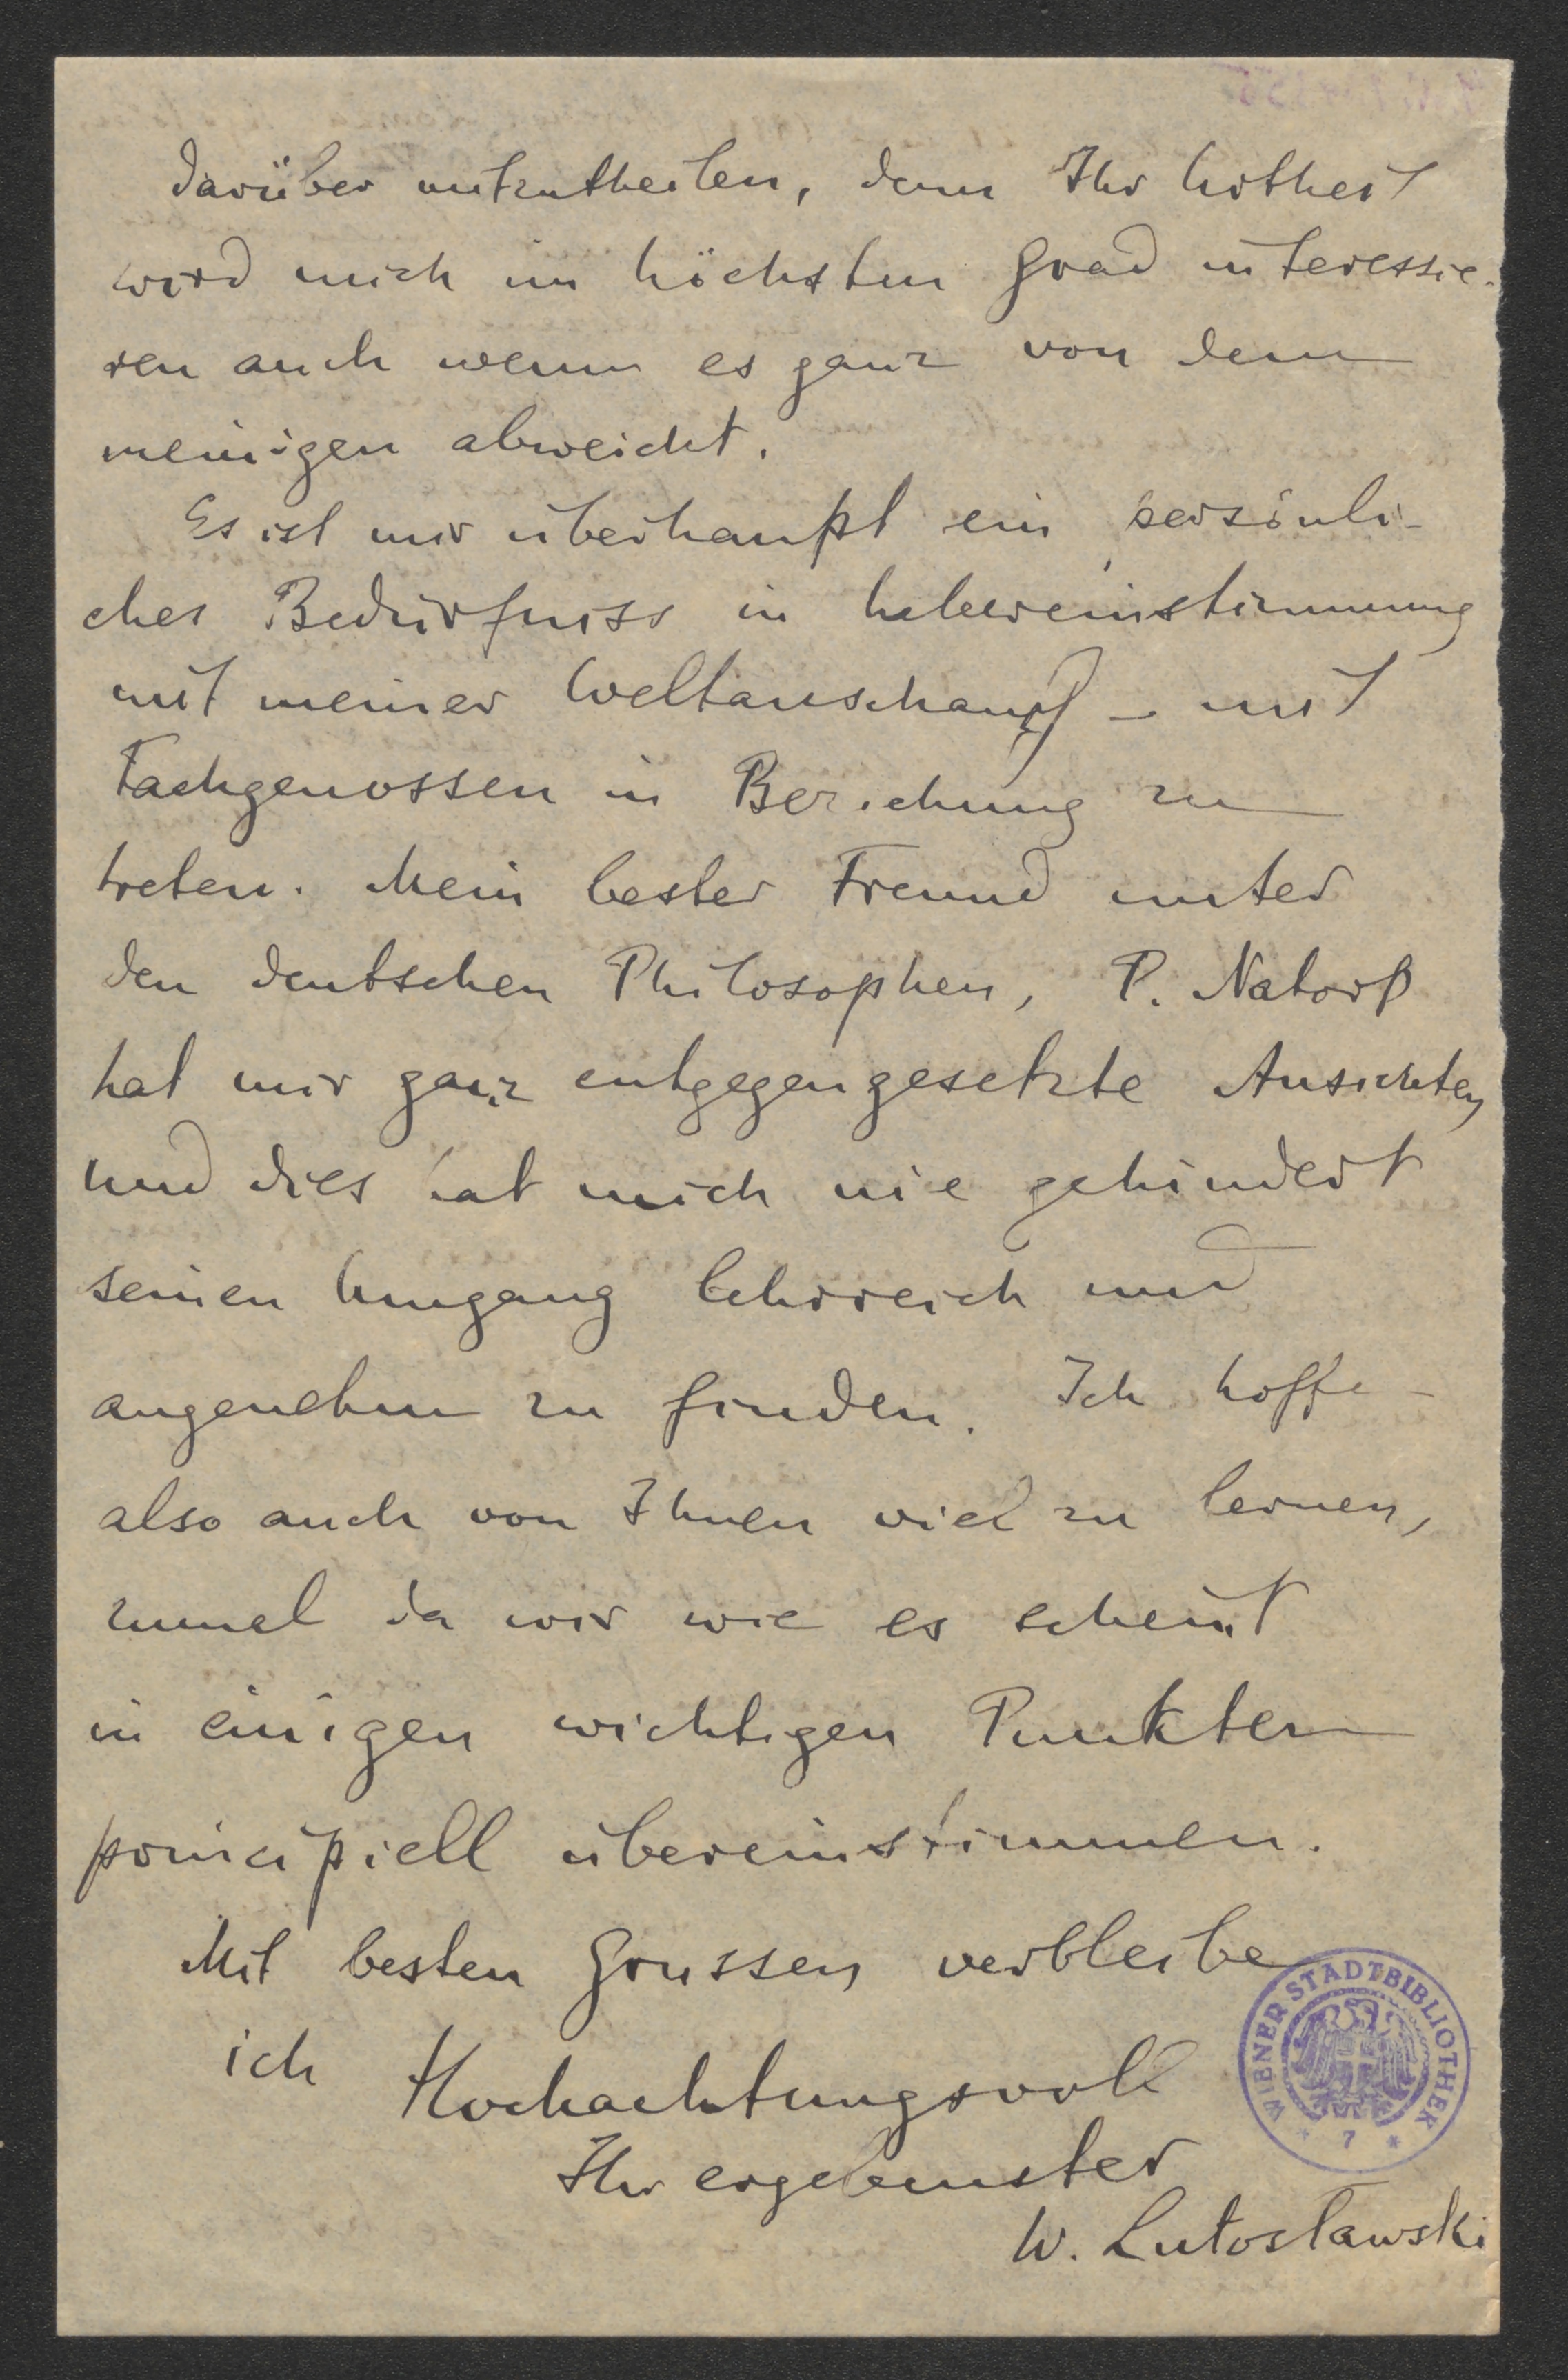 darüber mitzutheilen, denn Ihr Urtheil
wird mich im höchsten Grad interessie-
ren auch wenn es ganz von dem
meinigen abweicht.
Es ist mir überhaupt ein persönli-
ches Bedürfniss in Uebereinstimmung
mit meiner Weltanschaug - mit
Fachgenossen in Beziehung zu
treten. Mein bester Freund unter
den deutschen Philosophen, P. Natorp
hat mir ganz entgegengesetzte Ansichten
und dies hat mich nie gehindert
seinen Umgang lehrreich und
angenehm zu finden. Ich hoffe
also auch von Ihnen viel zu lernen,
zumal da wir wie es scheint
in einigen wichtigen Punkten
principiell übereinstimmen.
Mit besten Grussen verbleibe
ich Hochachtungsvoll
Ihr ergebenster
W. Lutosławski
WIENER STADTBIBLIOTHEK
* 7 *